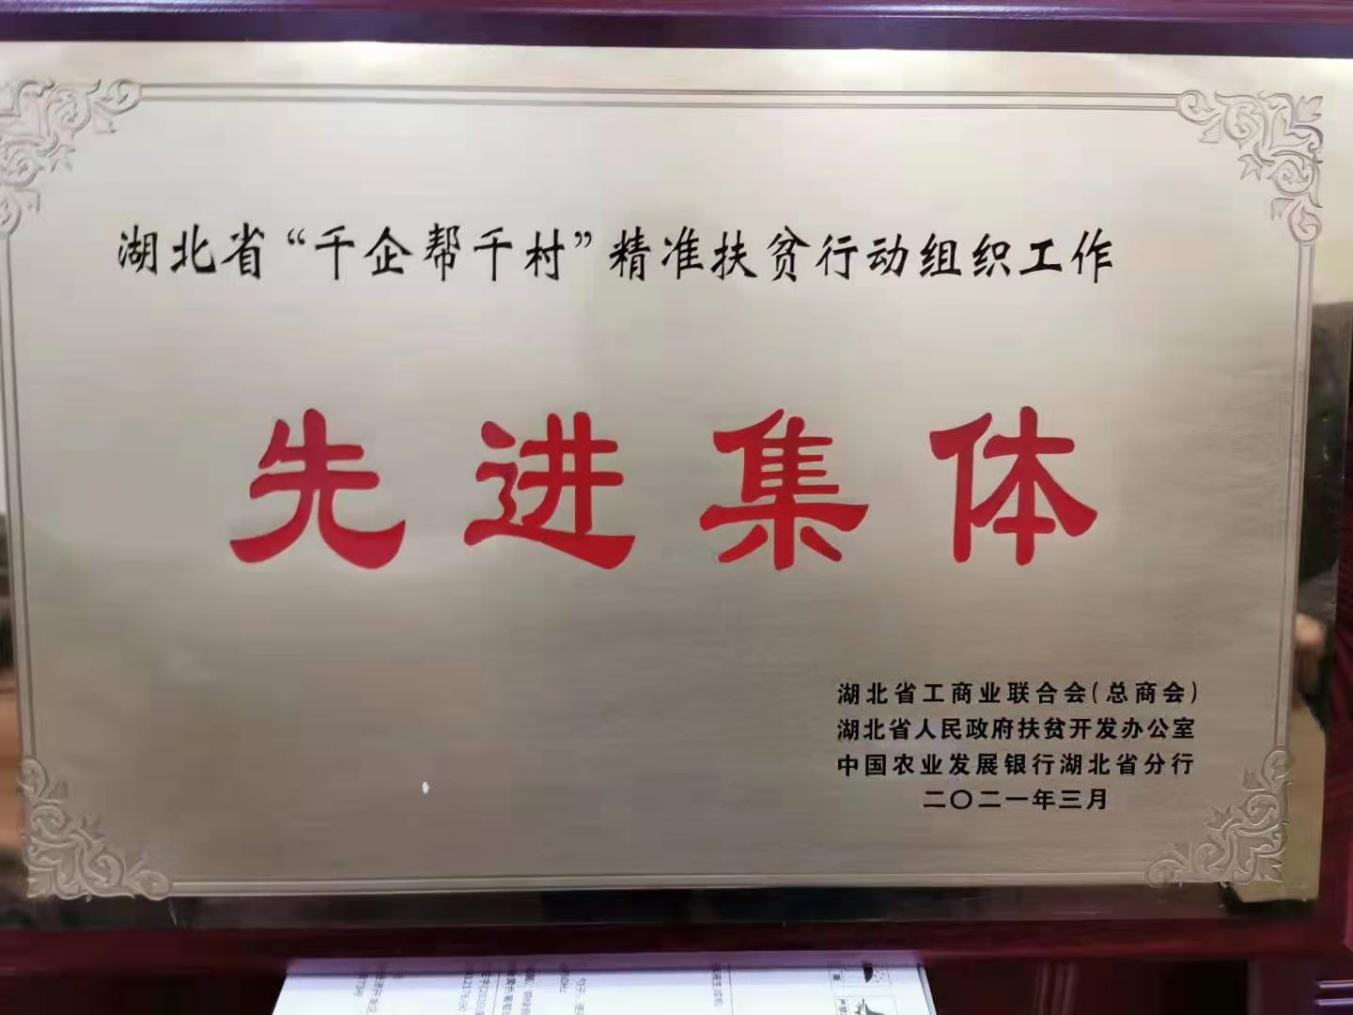 湖北省“千企帮千村”精准扶贫行动组织工作
先进集体
湖北省工商业联合会(总商会)
湖北省人民政府扶贫开发办公室
中国农业发展银行湖北省分行
二〇二一年三月